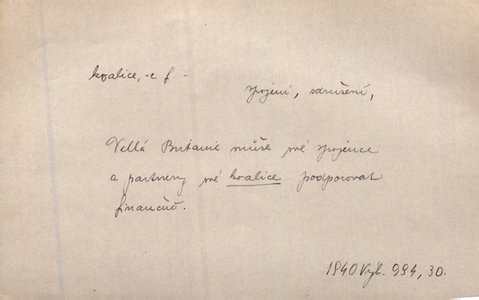 koalice, -e f -
spojení, sdružení,
Velká Britanie může své spojence
a partnery své koalice podporovat
finančně.
1840 Výb. 994, 30.